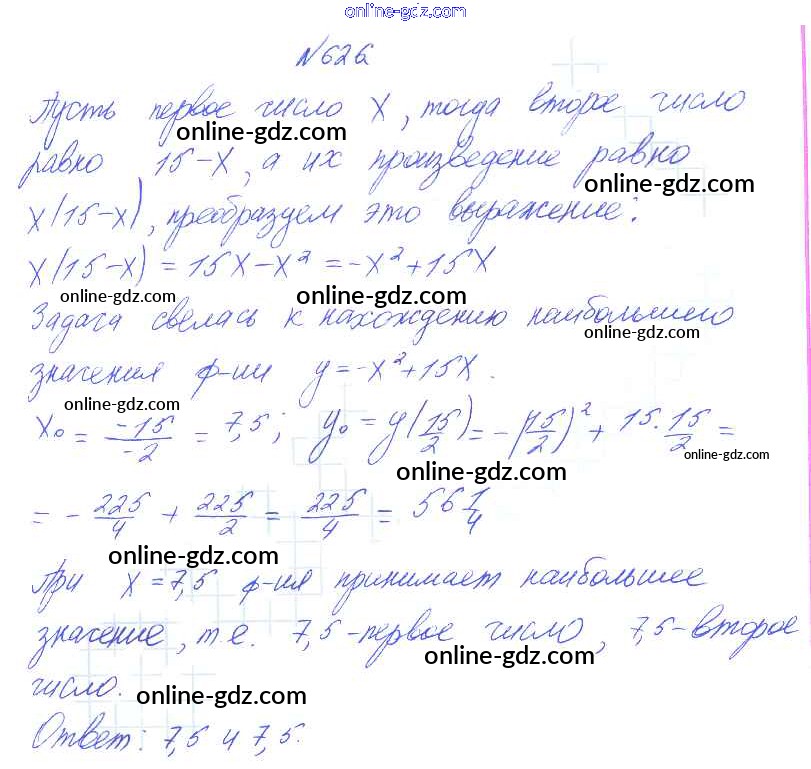 online-gdz.com
№626
Пусть первое число x, тогда второе число
online-gdz.com
равно 15-x, а их произведение равно
online-gdz.com
x(15-x), преобразуем это выражение:
x(15-x) = 15x-x² = -x²+15x
online-gdz.com online-gdz.com
Задача свелась к нахождению наибольшего
online-gdz.com
значения ф-ии y=-x²+15x.
online-gdz.com
x₀ = -15/-2 = 7,5; y₀ = y(15/2) = -(15/2)² + 15·15/2 =
online-gdz.com online-gdz.com
= - 225/4 + 225/2 = 225/4 = 56 1/4
online-gdz.com
При x=7,5 ф-ия принимает наибольшее
значение, т.е. 7,5-первое число, 7,5-второе
online-gdz.com
число.
online-gdz.com
Ответ: 7,5 и 7,5.